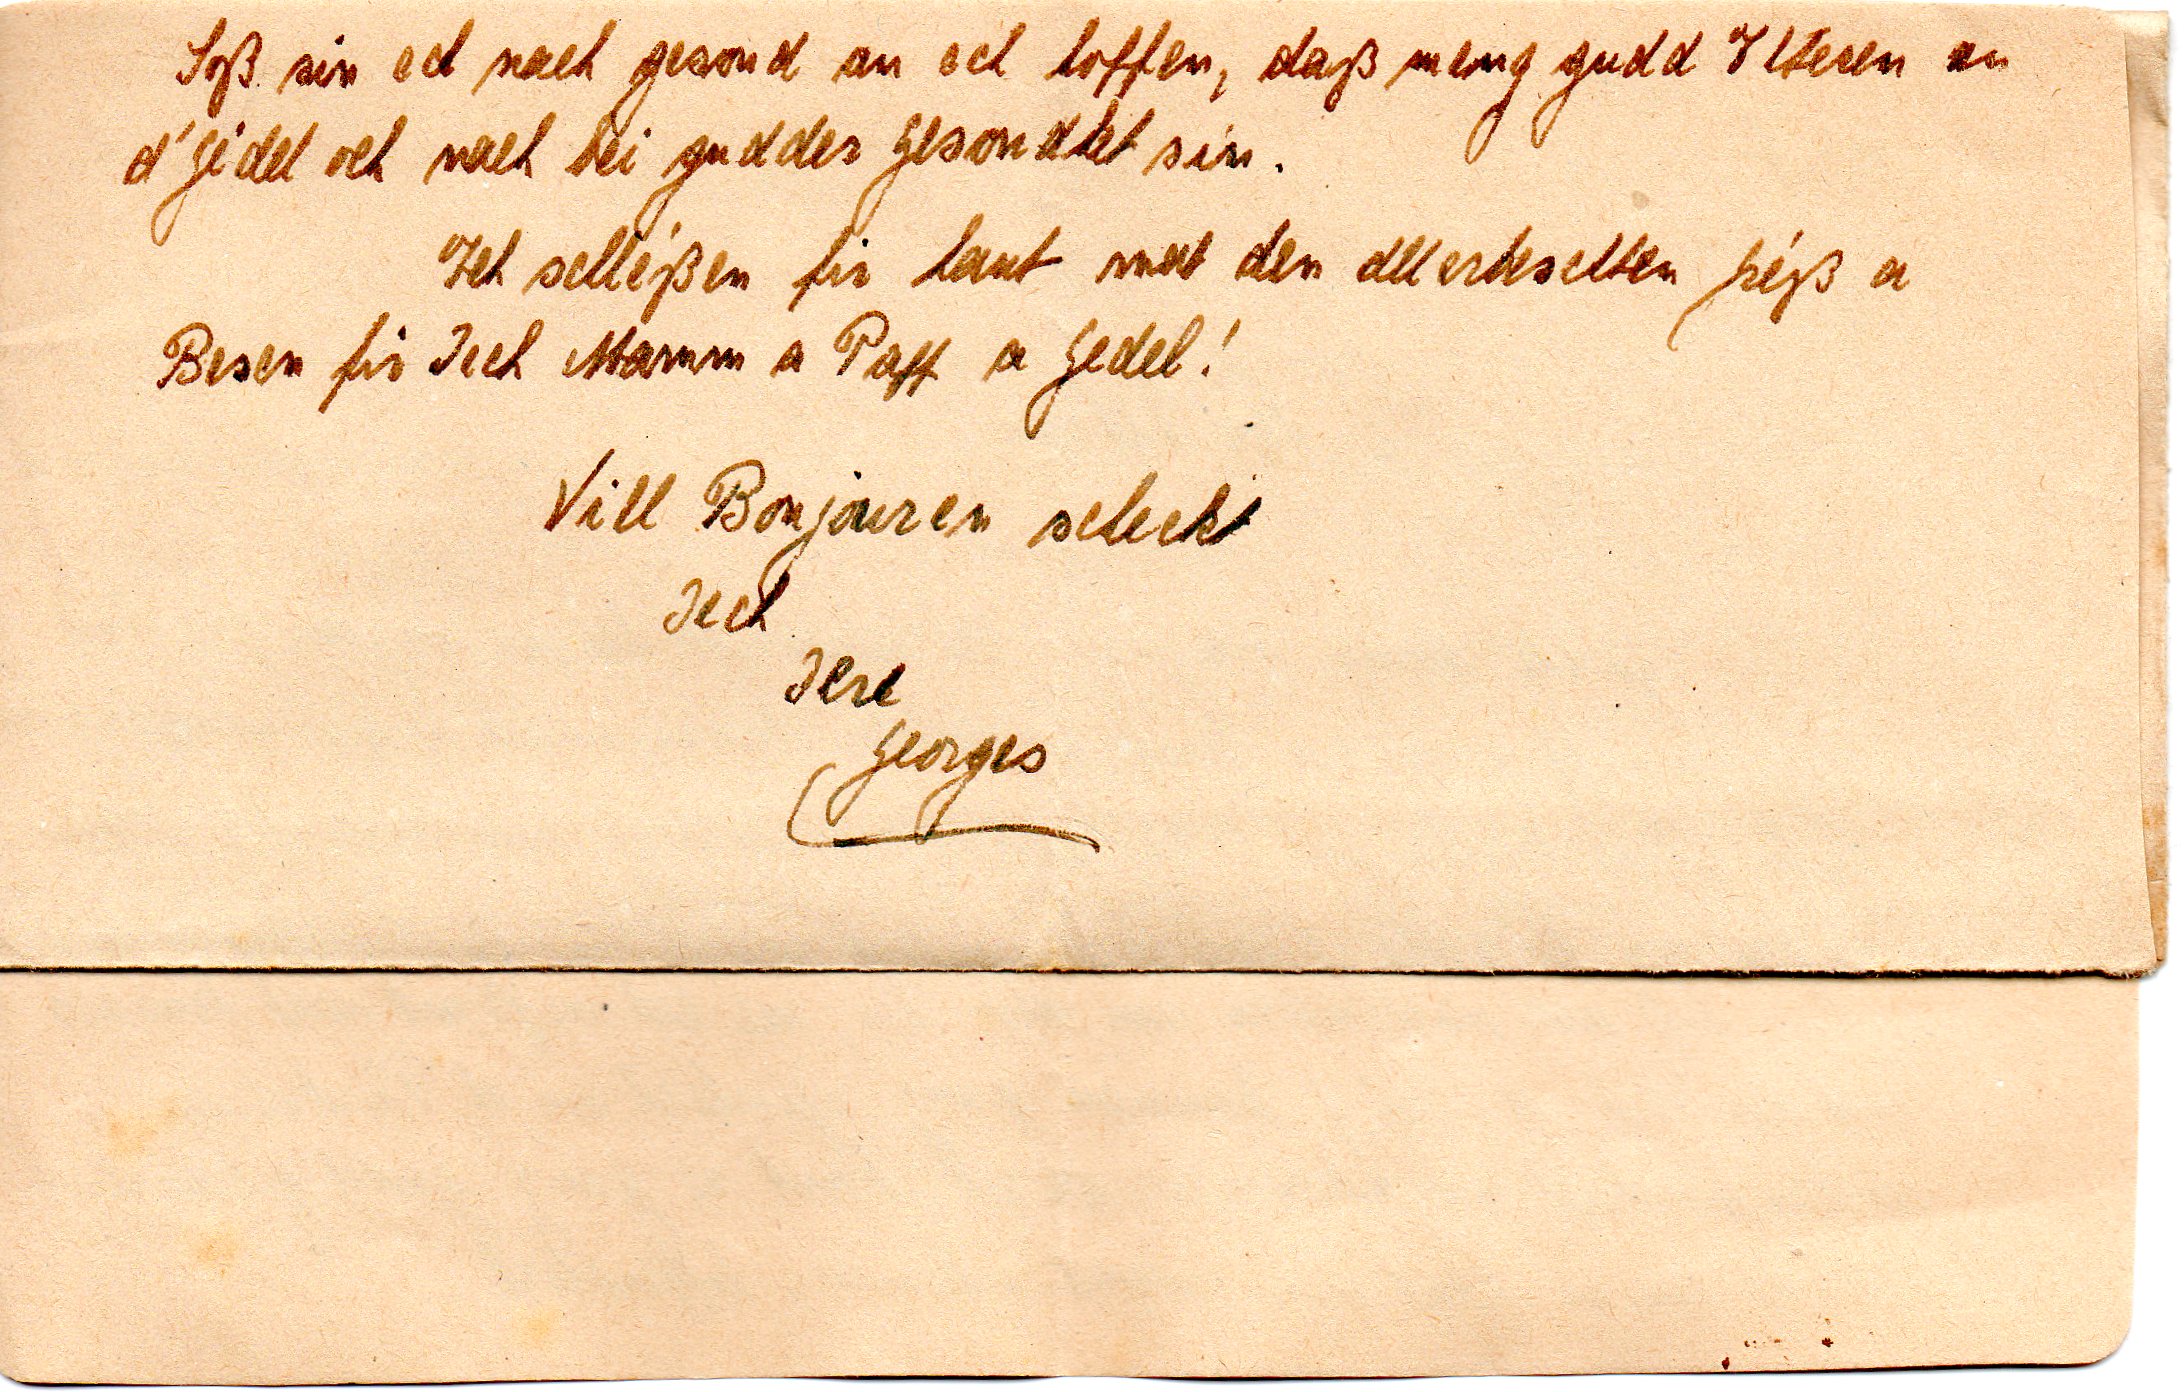 Soß sin ech nach gesond an ech hoffen, daß meng gudd Ieltesen an
d'Giedel och nach bei gudder Gesondhet sin.
Ech schléßen fir haut mat den allerbeschten Gréß a
Besen fir Iech Mamm a Papp a Gedel!
Vill Bonjouren scheckt
Iech
Iere
Georges